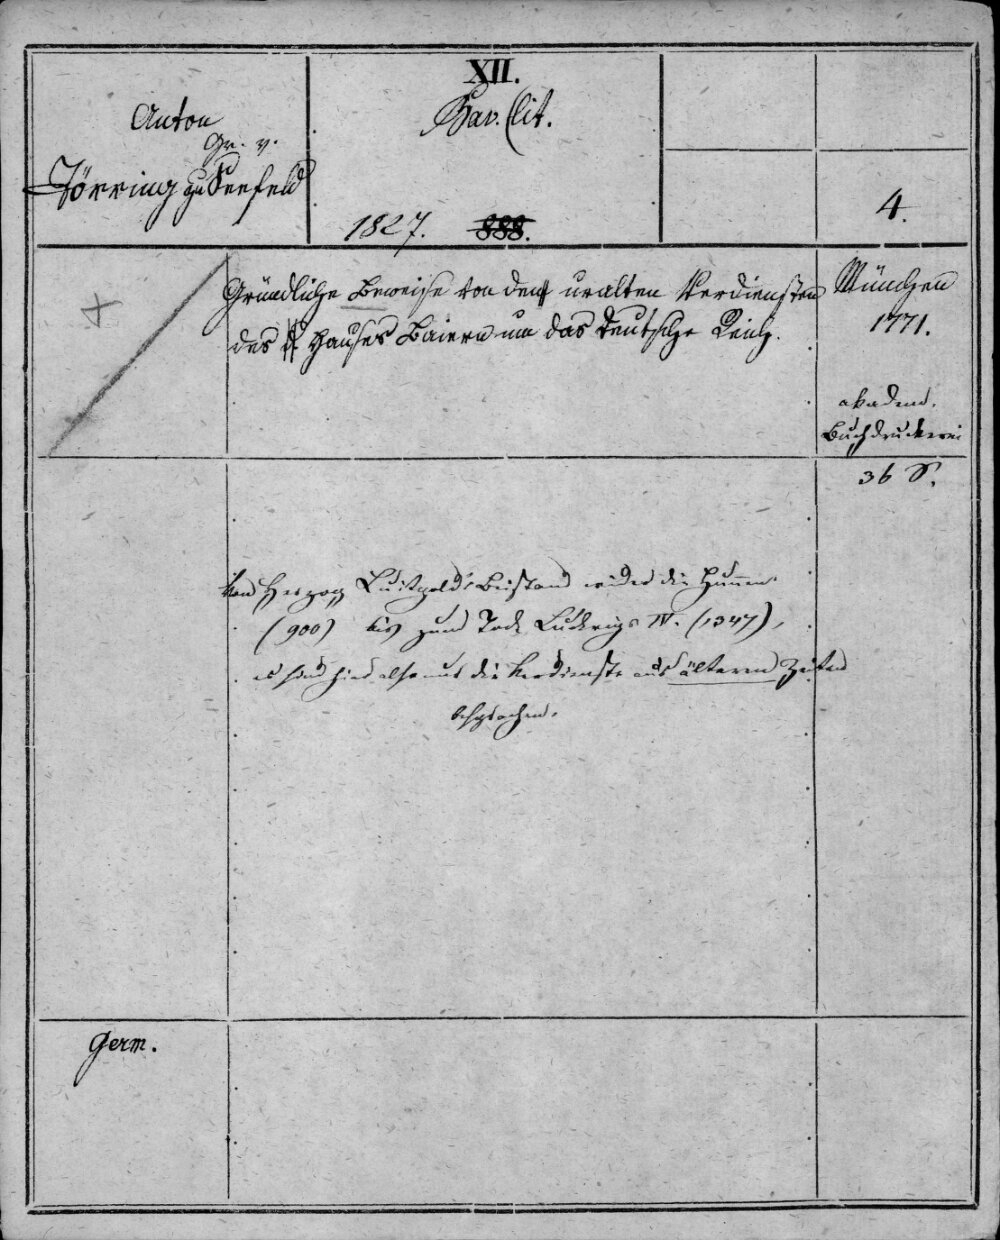 XII.
Anton
Gr. v.
Törring zu Seefeld
Bav. Lit.
1827. 888.
4.
Gründliche Beweise von den uralten Verdiensten
des Hauses Baiern um das deutsche Reich.
München
1771.
akadem.
Buchdruckerei
36 S.
Von Herzog Luitpold's Beistand wider die Hunnen
(900) bis zum Tode Ludwigs IV. (1347),
es sind hier also nur die Verdienste aus älteren Zeiten
besprochen.
Germ.